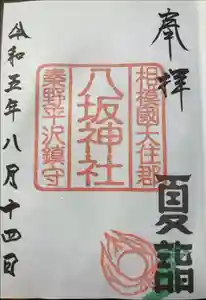 奉拝
夏詣
相模國大住郡
八坂神社
秦野平沢鎮守
令和五年八月十四日